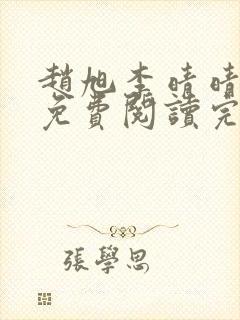 趙旭李晴晴
免費閱讀完
張學思